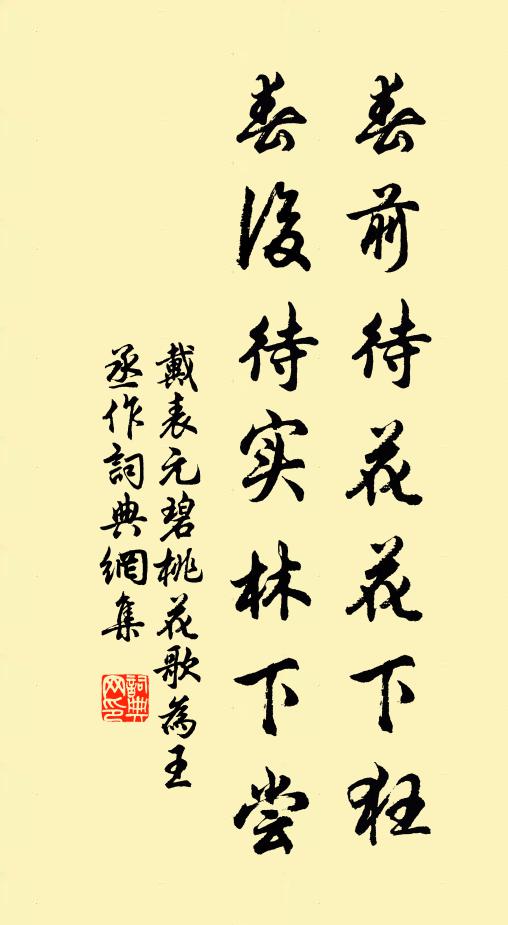 春前待花花下狂
春後待实林下尝
戴表元碧桃花歌為王
丞作詞典網集
詞典
网印